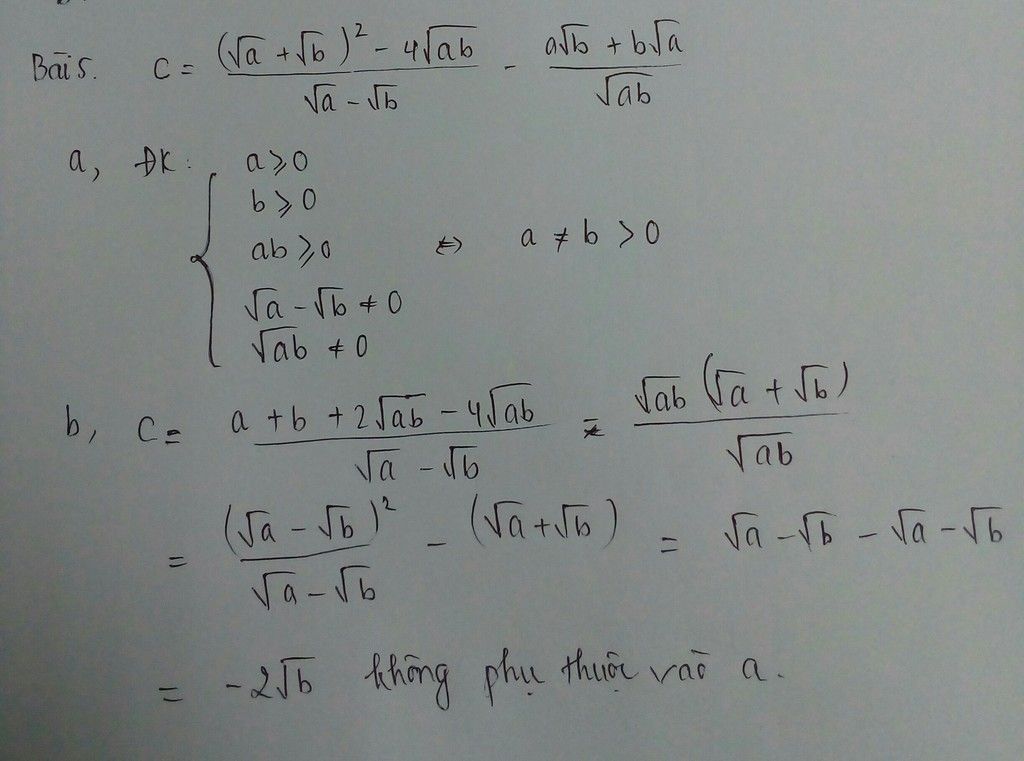 Bài 5. C = ((√a + √b)² - 4√ab)/(√a - √b) - (a√b + b√a)/√ab
a, ĐK: { a ⩾ 0
b ⩾ 0
ab ⩾ 0 ⇔ a ≠ b > 0
√a - √b ≠ 0
√ab ≠ 0
b, C = (a + b + 2√ab - 4√ab)/(√a - √b) - (√ab (√a + √b))/√ab
= (√a - √b)²/(√a - √b) - (√a + √b) = √a - √b - √a - √b
= -2√b không phụ thuộc vào a.